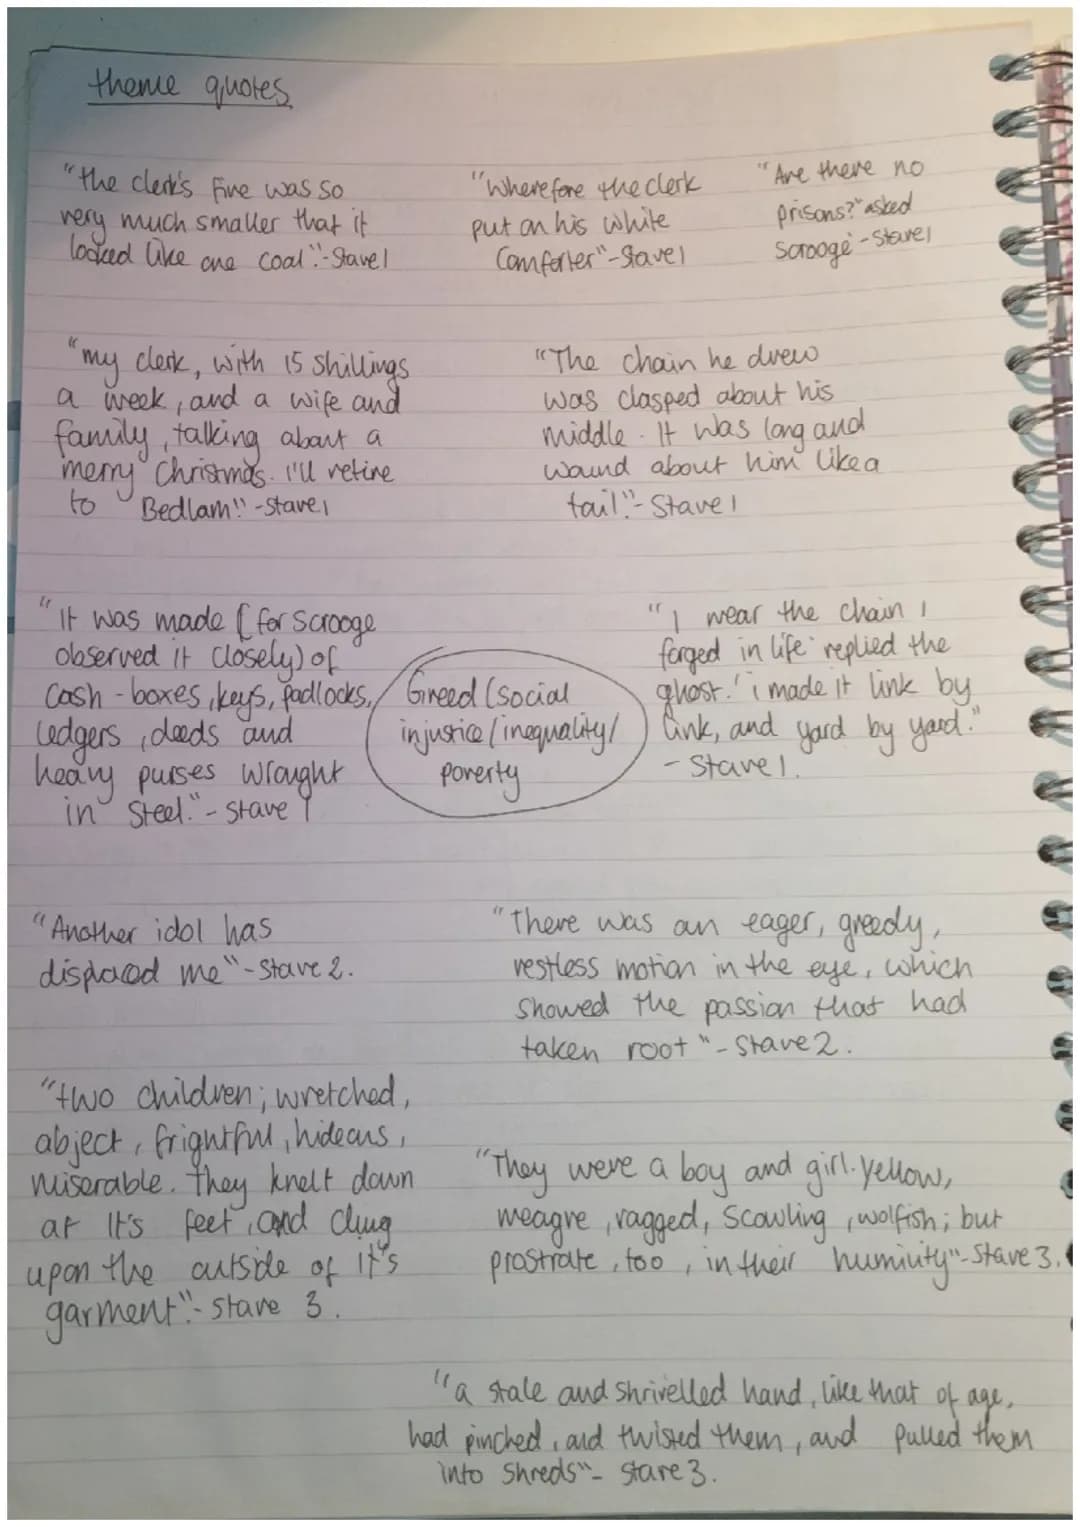 theme quotes
"the clerk's fire was so
very much smaller that it
looked like one coal."-Stave 1
"Wherefore the clerk
put on his white
Comforter"-Stave 1
"Are there no
prisons?" asked
Scrooge'-Stave 1
"my clerk, with 15 shillings
a week, and a wife and
family, talking about a
merry Christmas. I'll retire
to Bedlam"-Stave 1
"The chain he drew
was clasped about his
middle. It was long and
wound about him like a
tail"-Stave 1
"It was made (for Scrooge
observed it closely) of
cash-boxes, keys, padlocks,
ledgers, deeds and
heavy purses wrought
in steel."-Stave 1
Greed (social
injustice/inequality/
poverty
"I wear the chain I
forged in life' replied the
ghost.' i made it link by
link, and yard by yard."
-Stave 1.
"Another idol has
displaced me"-Stave 2.
"There was an eager, greedy,
restless motion in the eye, which
showed the passion that had
taken root"-Stave 2.
"two children; wretched,
abject, frightful, hideous,
miserable. They knelt down
at It's feet, and clung
upon the outside of it's
garment"-Stave 3.
"They were a boy and girl. Yellow,
meagre, ragged, Scowling, wolfish; but
prostrate, too, in their humility"-Stave 3.
"a stale and shrivelled hand, like that of age,
had pinched, and twisted them, and pulled them
into shreds"-Stave 3.